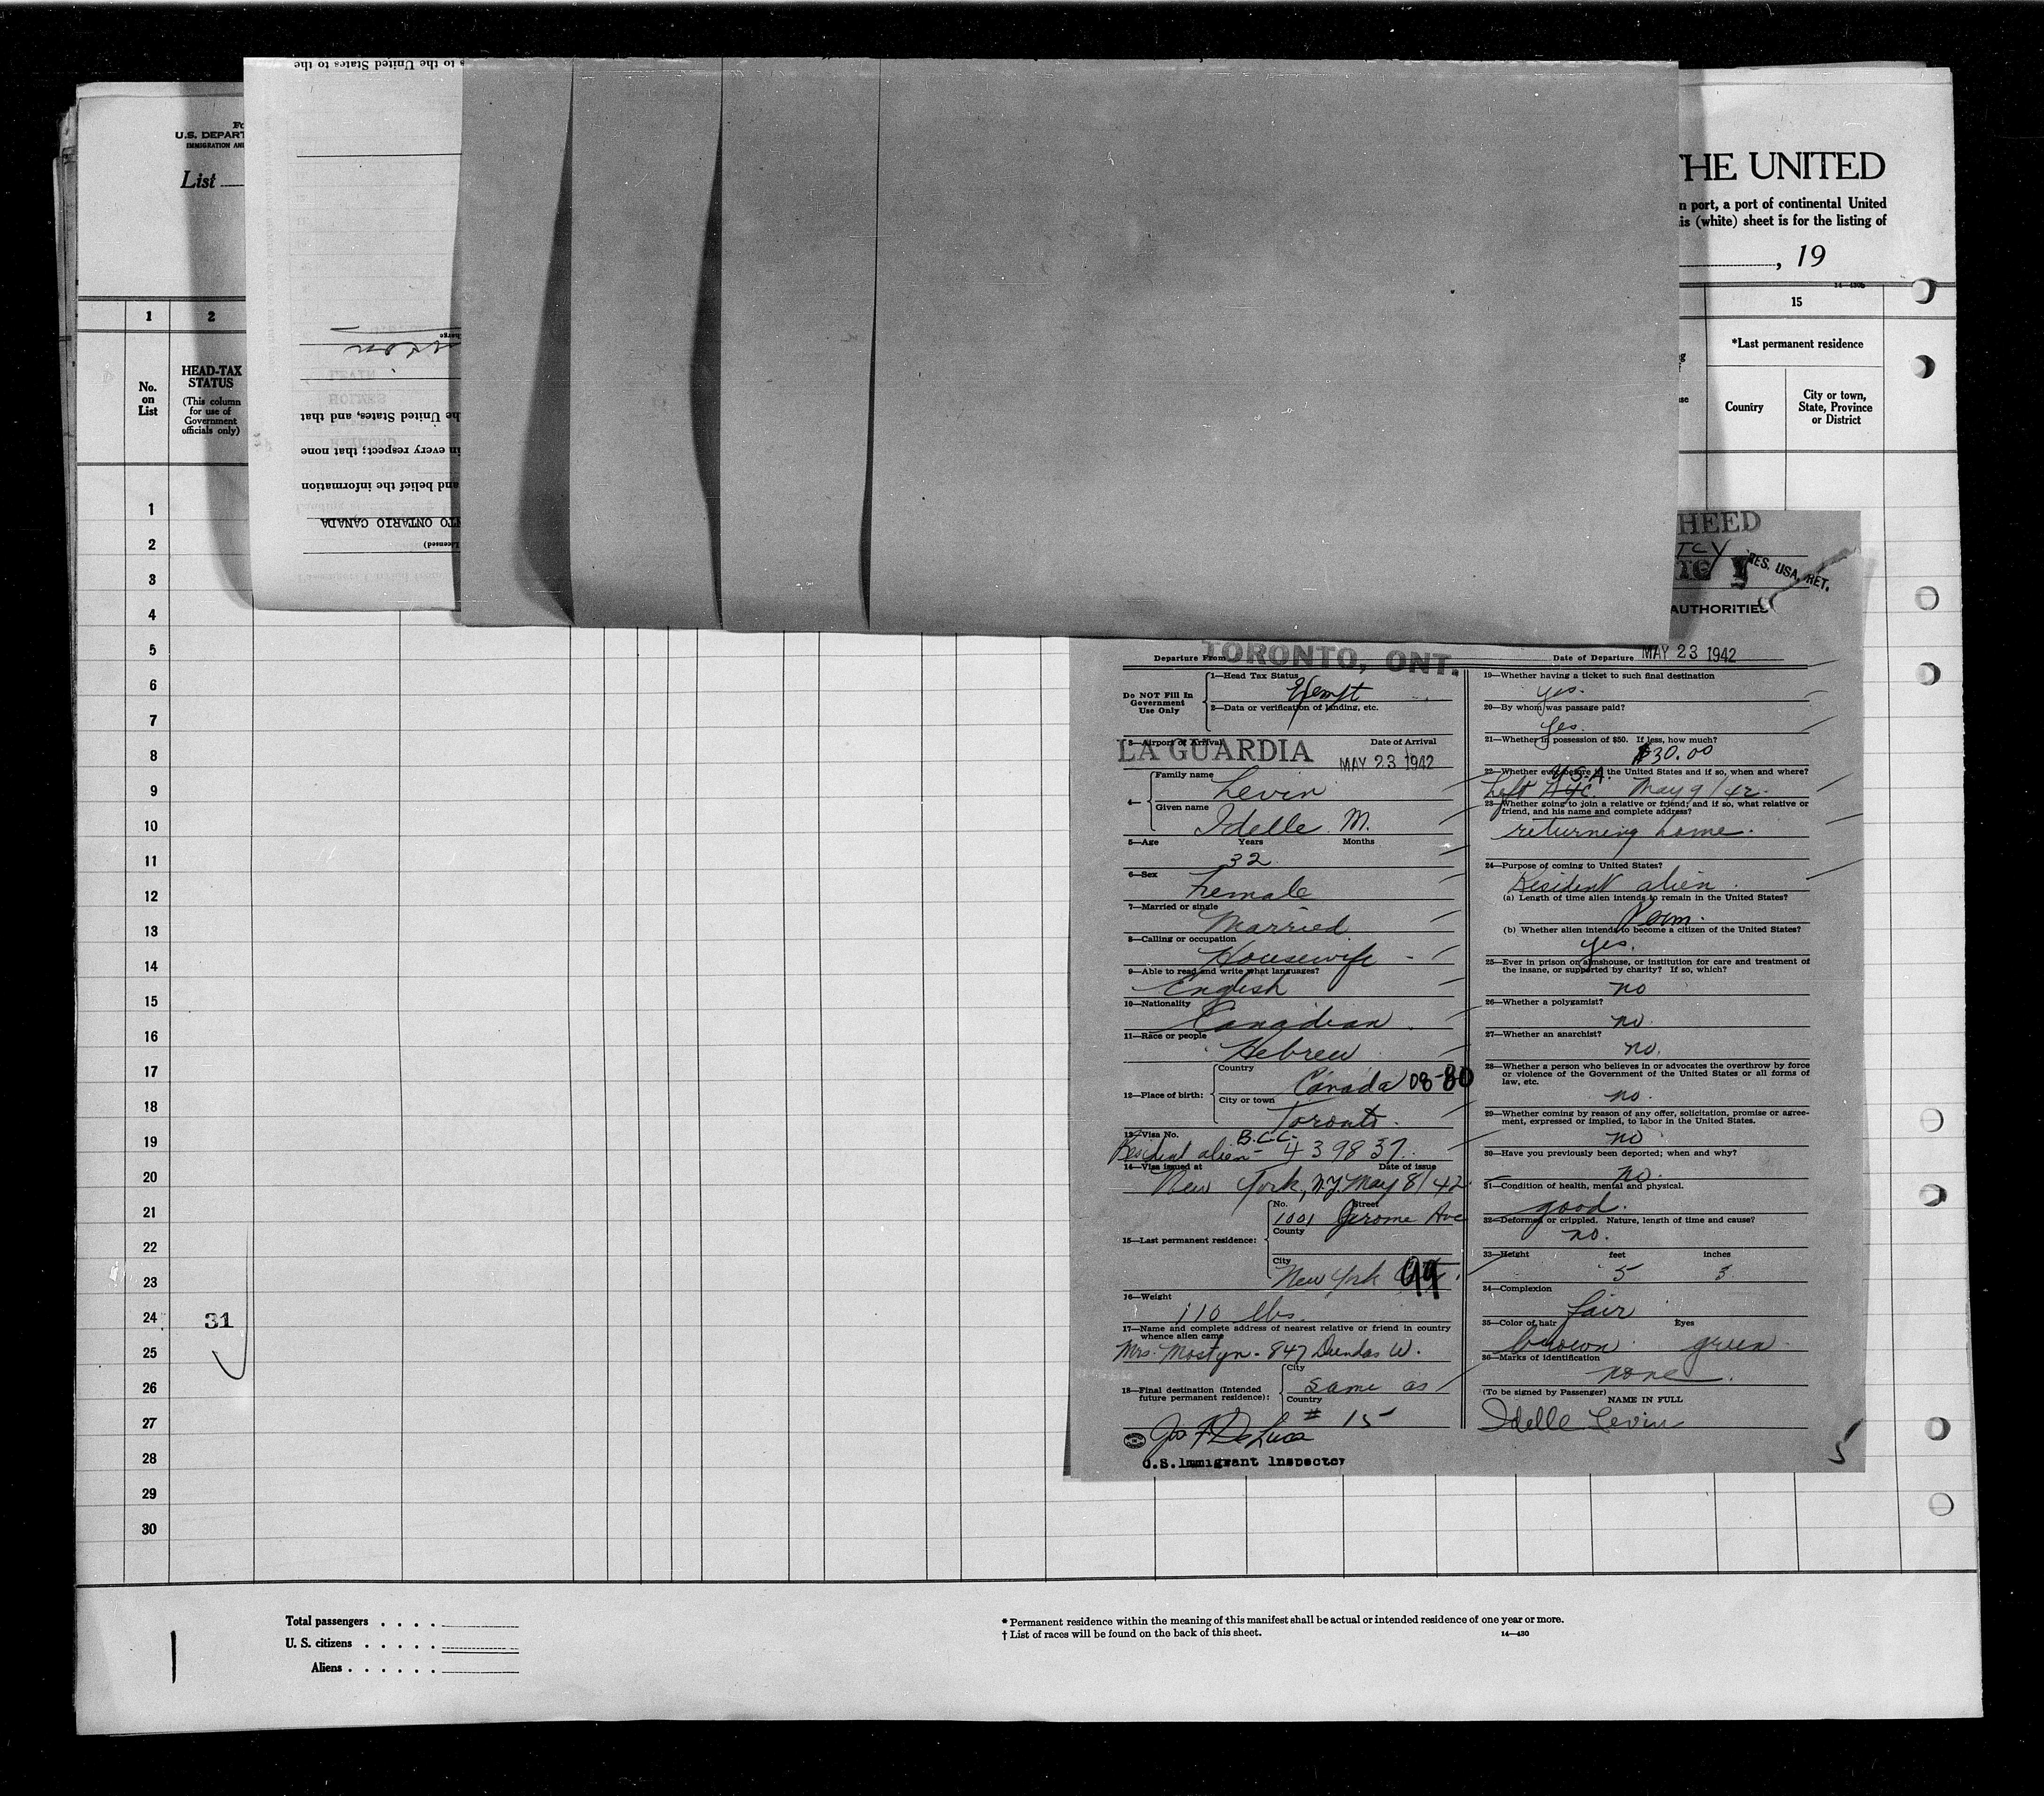 s to the United States to the
U.S. DEPART
IMMIGRATION AN
List
THE UNITED
n port, a port of continental United
is (white) sheet is for the listing of
, 19
1
2
15
No. on List
HEAD-TAX STATUS
(This column for use of Government officials only)
*Last permanent residence
Country
City or town, State, Province or District
he United States, and that
in every respect; that none
and belief the information
TO ONTARIO CANADA
Licensed)
1
2
3
4
5
6
7
8
9
10
11
12
13
14
15
16
17
18
19
20
21
22
23
24
31
25
26
27
28
29
30
HEED
RES. USA, RET.
AUTHORITIES
Departure From TORONTO, ONT.
Date of Departure MAY 23 1942
Do NOT Fill In Government Use Only
1—Head Tax Status Exempt
2—Data or verification of landing, etc.
3—Airport of Arrival
Date of Arrival
LA GUARDIA
MAY 23 1942
4—
Family name
Levin
Given name
Idelle M.
5—Age Years Months
32
6—Sex
Female
7—Married or single
Married
8—Calling or occupation
Housewife
9—Able to read and write what languages?
English
10—Nationality
Canadian
11—Race or people
Hebrew
12—Place of birth:
Country
Canada 08-80
City or town
Toronto.
13—Visa No. B.C.C.
Resident alien - 439837.
14—Visa issued at Date of issue
New York, N.Y. May 8/42
15—Last permanent residence:
No. Street
1001 Jerome Ave
County
City
New York 99
16—Weight
110 lbs.
17—Name and complete address of nearest relative or friend in country whence alien came
Mrs. Mostyn - 847 Dundas W.
18—Final destination (Intended future permanent residence):
City
same as
Country
# 15
Jos F De Luca
U.S. Immigrant Inspector
19—Whether having a ticket to such final destination
yes.
20—By whom was passage paid?
yes.
21—Whether in possession of $50. If less, how much?
$30.00
22—Whether ever before in the United States and if so, when and where?
Left U.S.A. May 9/42.
23—Whether going to join a relative or friend; and if so, what relative or friend, and his name and complete address?
returning home.
24—Purpose of coming to United States?
Resident alien.
(a) Length of time alien intends to remain in the United States?
Perm.
(b) Whether alien intends to become a citizen of the United States?
yes.
25—Ever in prison or almshouse, or institution for care and treatment of the insane, or supported by charity? If so, which?
no
26—Whether a polygamist?
no.
27—Whether an anarchist?
no.
28—Whether a person who believes in or advocates the overthrow by force or violence of the Government of the United States or all forms of law, etc.
no.
29—Whether coming by reason of any offer, solicitation, promise or agreement, expressed or implied, to labor in the United States.
no
30—Have you previously been deported; when and why?
no.
31—Condition of health, mental and physical.
good.
32—Deformed or crippled. Nature, length of time and cause?
no.
33—Height feet inches
5 3
34—Complexion
fair
35—Color of hair Eyes
brown green
36—Marks of identification
none.
(To be signed by Passenger)
NAME IN FULL
Idelle Levin
5
Total passengers
U. S. citizens
Aliens
* Permanent residence within the meaning of this manifest shall be actual or intended residence of one year or more.
† List of races will be found on the back of this sheet.
14—430